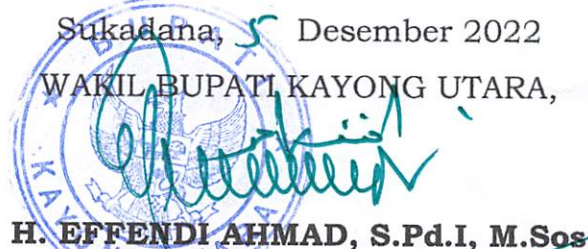 Sukadana, 5 Desember 2022
WAKIL BUPATI KAYONG UTARA,
BUPATI
KAYO
H. EFFENDI AHMAD, S.Pd.I, M.Sos